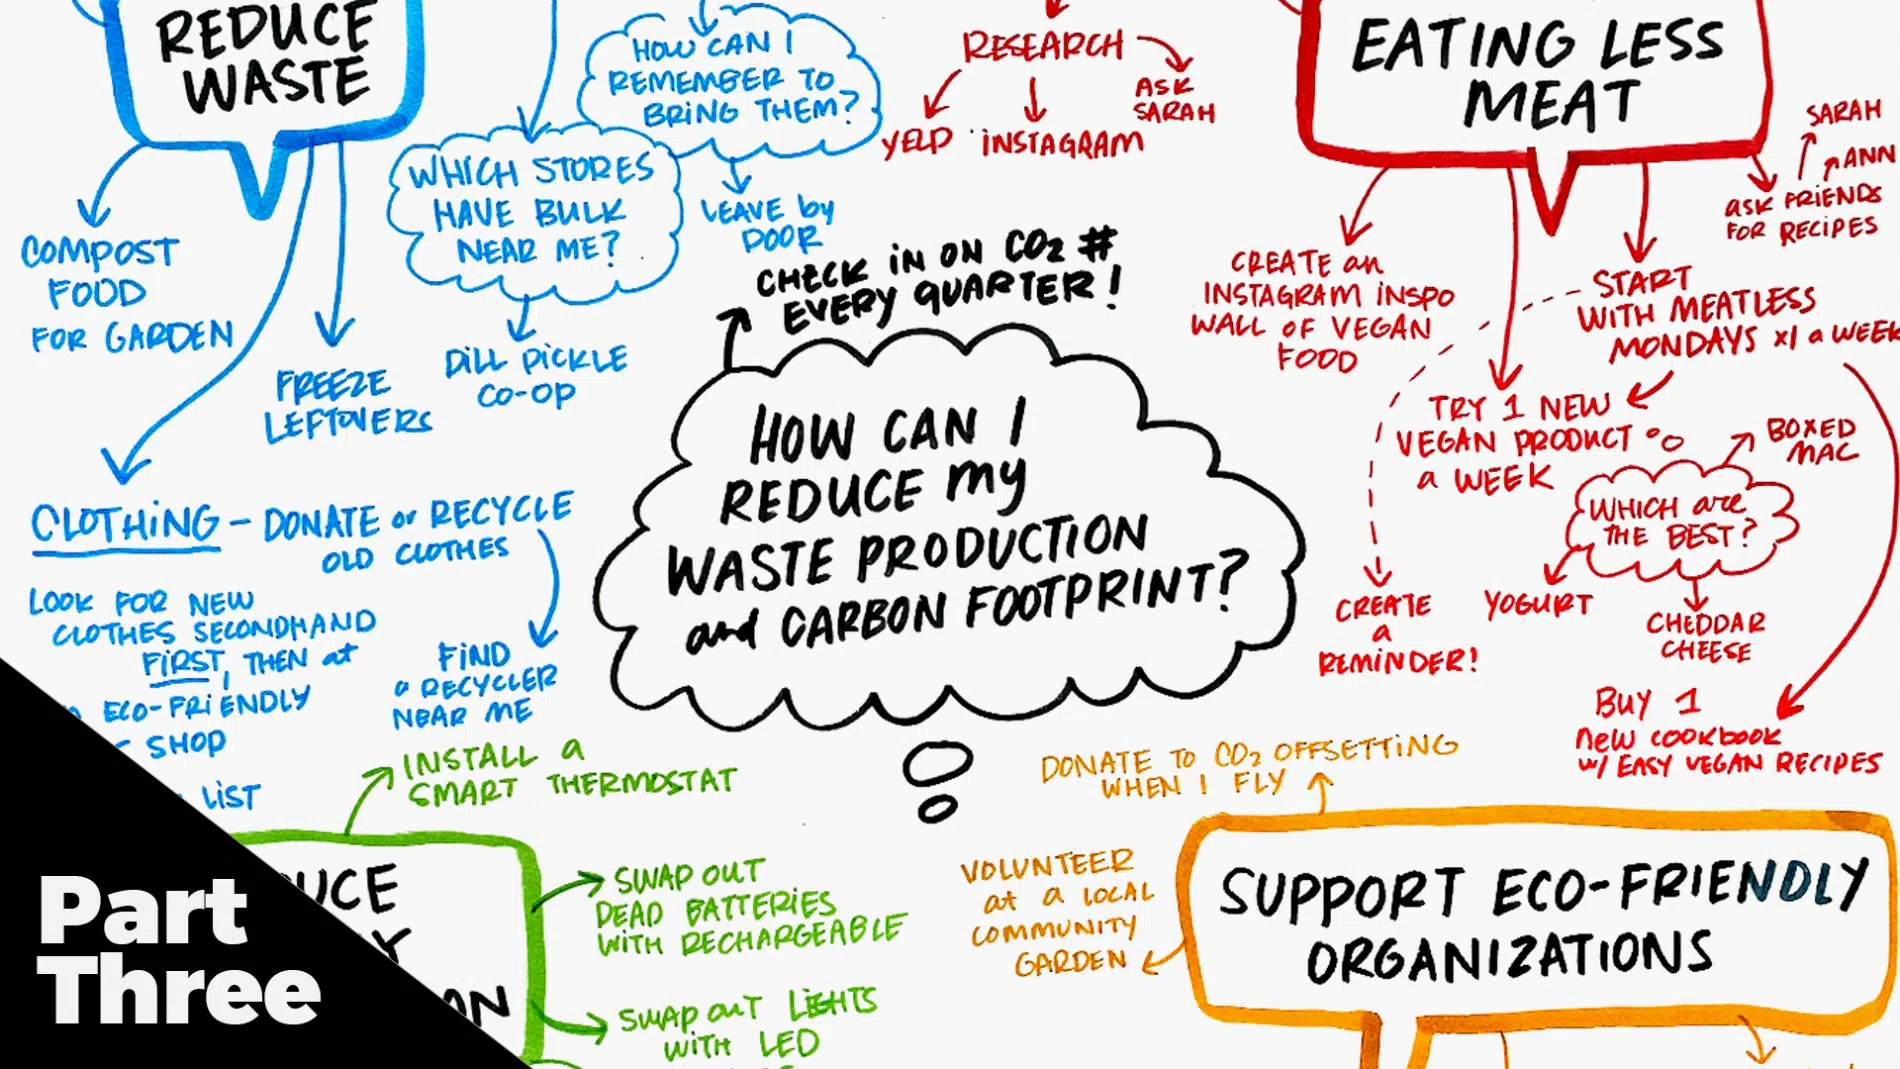 REDUCE
WASTE
COMPOST
FOOD
FOR GARDEN
FREEZE
LEFTOVERS
HOW CAN I
REMEMBER TO
BRING THEM?
LEAVE by
DOOR
WHICH STORES
HAVE BULK
NEAR ME?
DILL PICKLE
CO-OP
CLOTHING - DONATE or RECYCLE
OLD CLOTHES
FIND
a RECYCLER
NEAR ME
LOOK FOR NEW
CLOTHES SECONDHAND
FIRST, THEN at
ECO-FRIENDLY
SHOP
LIST
RESEARCH
YELP
INSTAGRAM
ASK
SARAH
CHECK IN ON CO2 #
EVERY QUARTER!
HOW CAN I
REDUCE my
WASTE PRODUCTION
and CARBON FOOTPRINT?
EATING LESS
MEAT
CREATE an
INSTAGRAM INSPO
WALL OF VEGAN
FOOD
START
WITH MEATLESS
MONDAYS x1 a WEEK
SARAH
ANN
ASK FRIENDS
FOR RECIPES
TRY 1 NEW
VEGAN PRODUCT
a WEEK
WHICH are
THE BEST?
BOXED
MAC
YOGURT
CHEDDAR
CHEESE
CREATE
a
REMINDER!
BUY 1
new COOKbOOK
w/ EASY VEGAN RECIPES
INSTALL a
SMART THERMOSTAT
UCE
Y
ON
SWAP OUT
DEAD BATTERIES
WITH RECHARGEABLE
SWAP OUT LIGHTS
WITH LED
DONATE TO CO2 OFFSETTING
WHEN I FLY
VOLUNTEER
at a LOCAL
COMMUNITY
GARDEN
SUPPORT ECO-FRIENDLY
ORGANIZATIONS
Part
Three